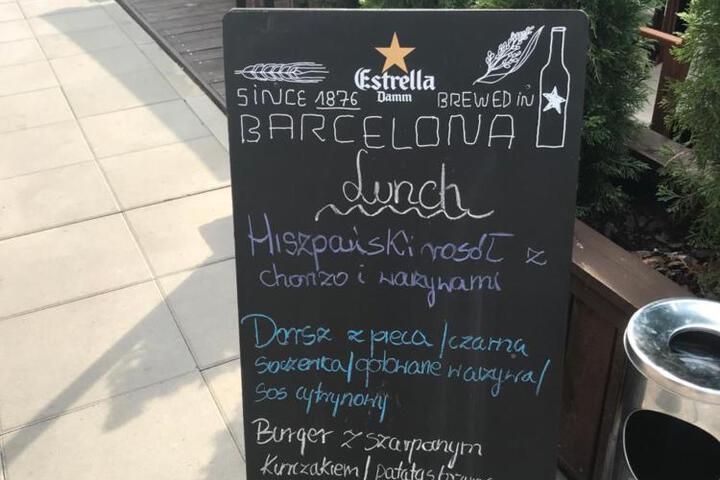 Estrella
Damm
SINCE 1876 BREWED IN
BARCELONA
Lunch
HISZPAŃSKI rosół z
chorizo i warzywami
Dorsz z pieca/czarna
soczewica/gotowane warzywa/
sos cytrynowy
Burger z szarpanym
kurczakiem/patatas